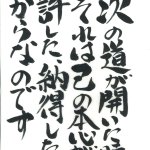 次の道が開いた時
それは己の本心が
許した、納得した
からなのです